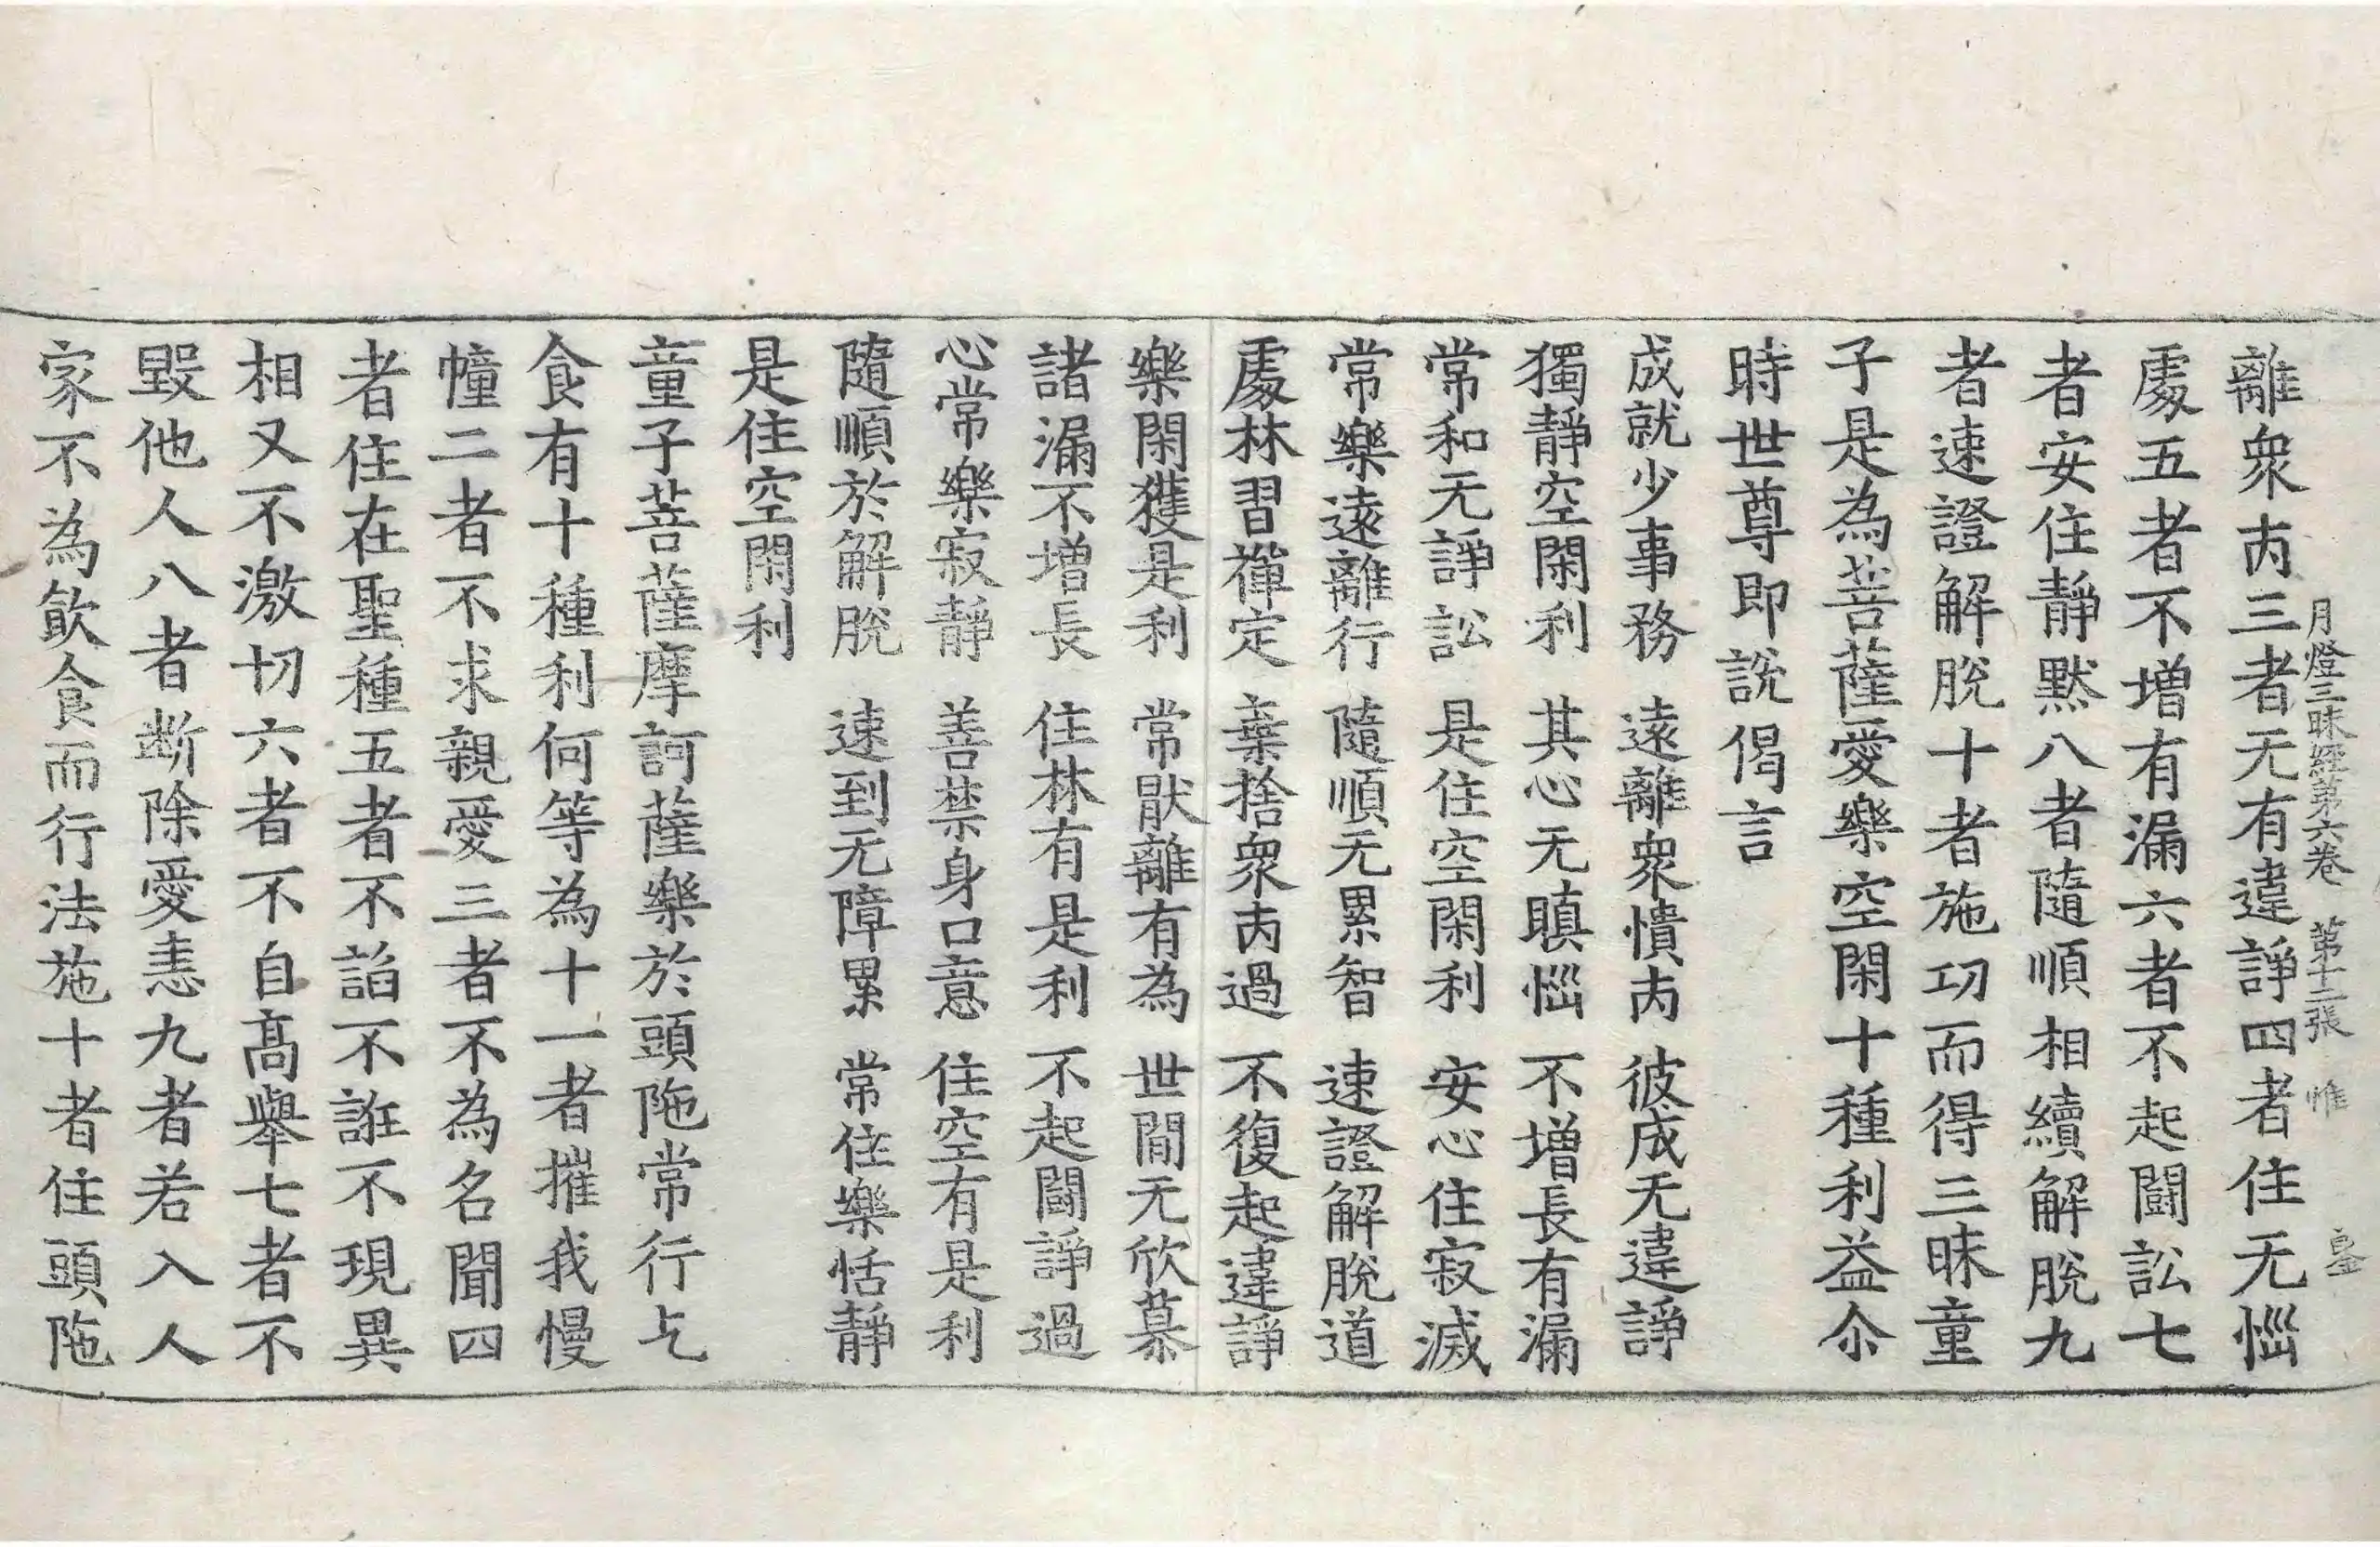 離衆㐫三者无有違諍四者住无惱
月燈三昧經第六卷　第十二張　惟
處五者不增有漏六者不起鬪訟七
者安住靜默八者隨順相續解脫九
者速證解脫十者施㓛而得三昧童
子是為菩薩愛樂空閑十種利益尒
時世尊即說偈言
成就少事務　遠離衆憒㐫　彼成无違諍
獨靜空閑利　其心无瞋惱　不增長有漏
常和无諍訟　是住空閑利　安心住寂滅
常樂遠離行　隨順无累智　速證解脫道
處林習禪定　棄捨衆㐫過　不復起違諍
樂閑獲是利　常猒離有為　世間无欣慕
諸漏不增長　住林有是利　不起鬪諍過
心常樂寂靜　善禁身口意　住空有是利
隨順於解脫　速到无障累　常住樂恬靜
是住空閑利
童子菩薩摩訶薩樂於頭陁常行乞
食有十種利何等為十一者摧我慢
幢二者不求親愛三者不為名聞四
者住在聖種五者不諂不誑不現異
相又不激切六者不自髙舉七者不
毀他人八者断除愛恚九者若入人
家不為飲食而行法施十者住頭陁